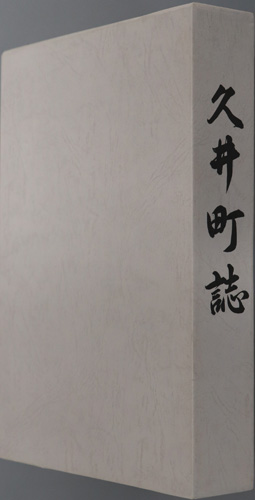 久井町誌